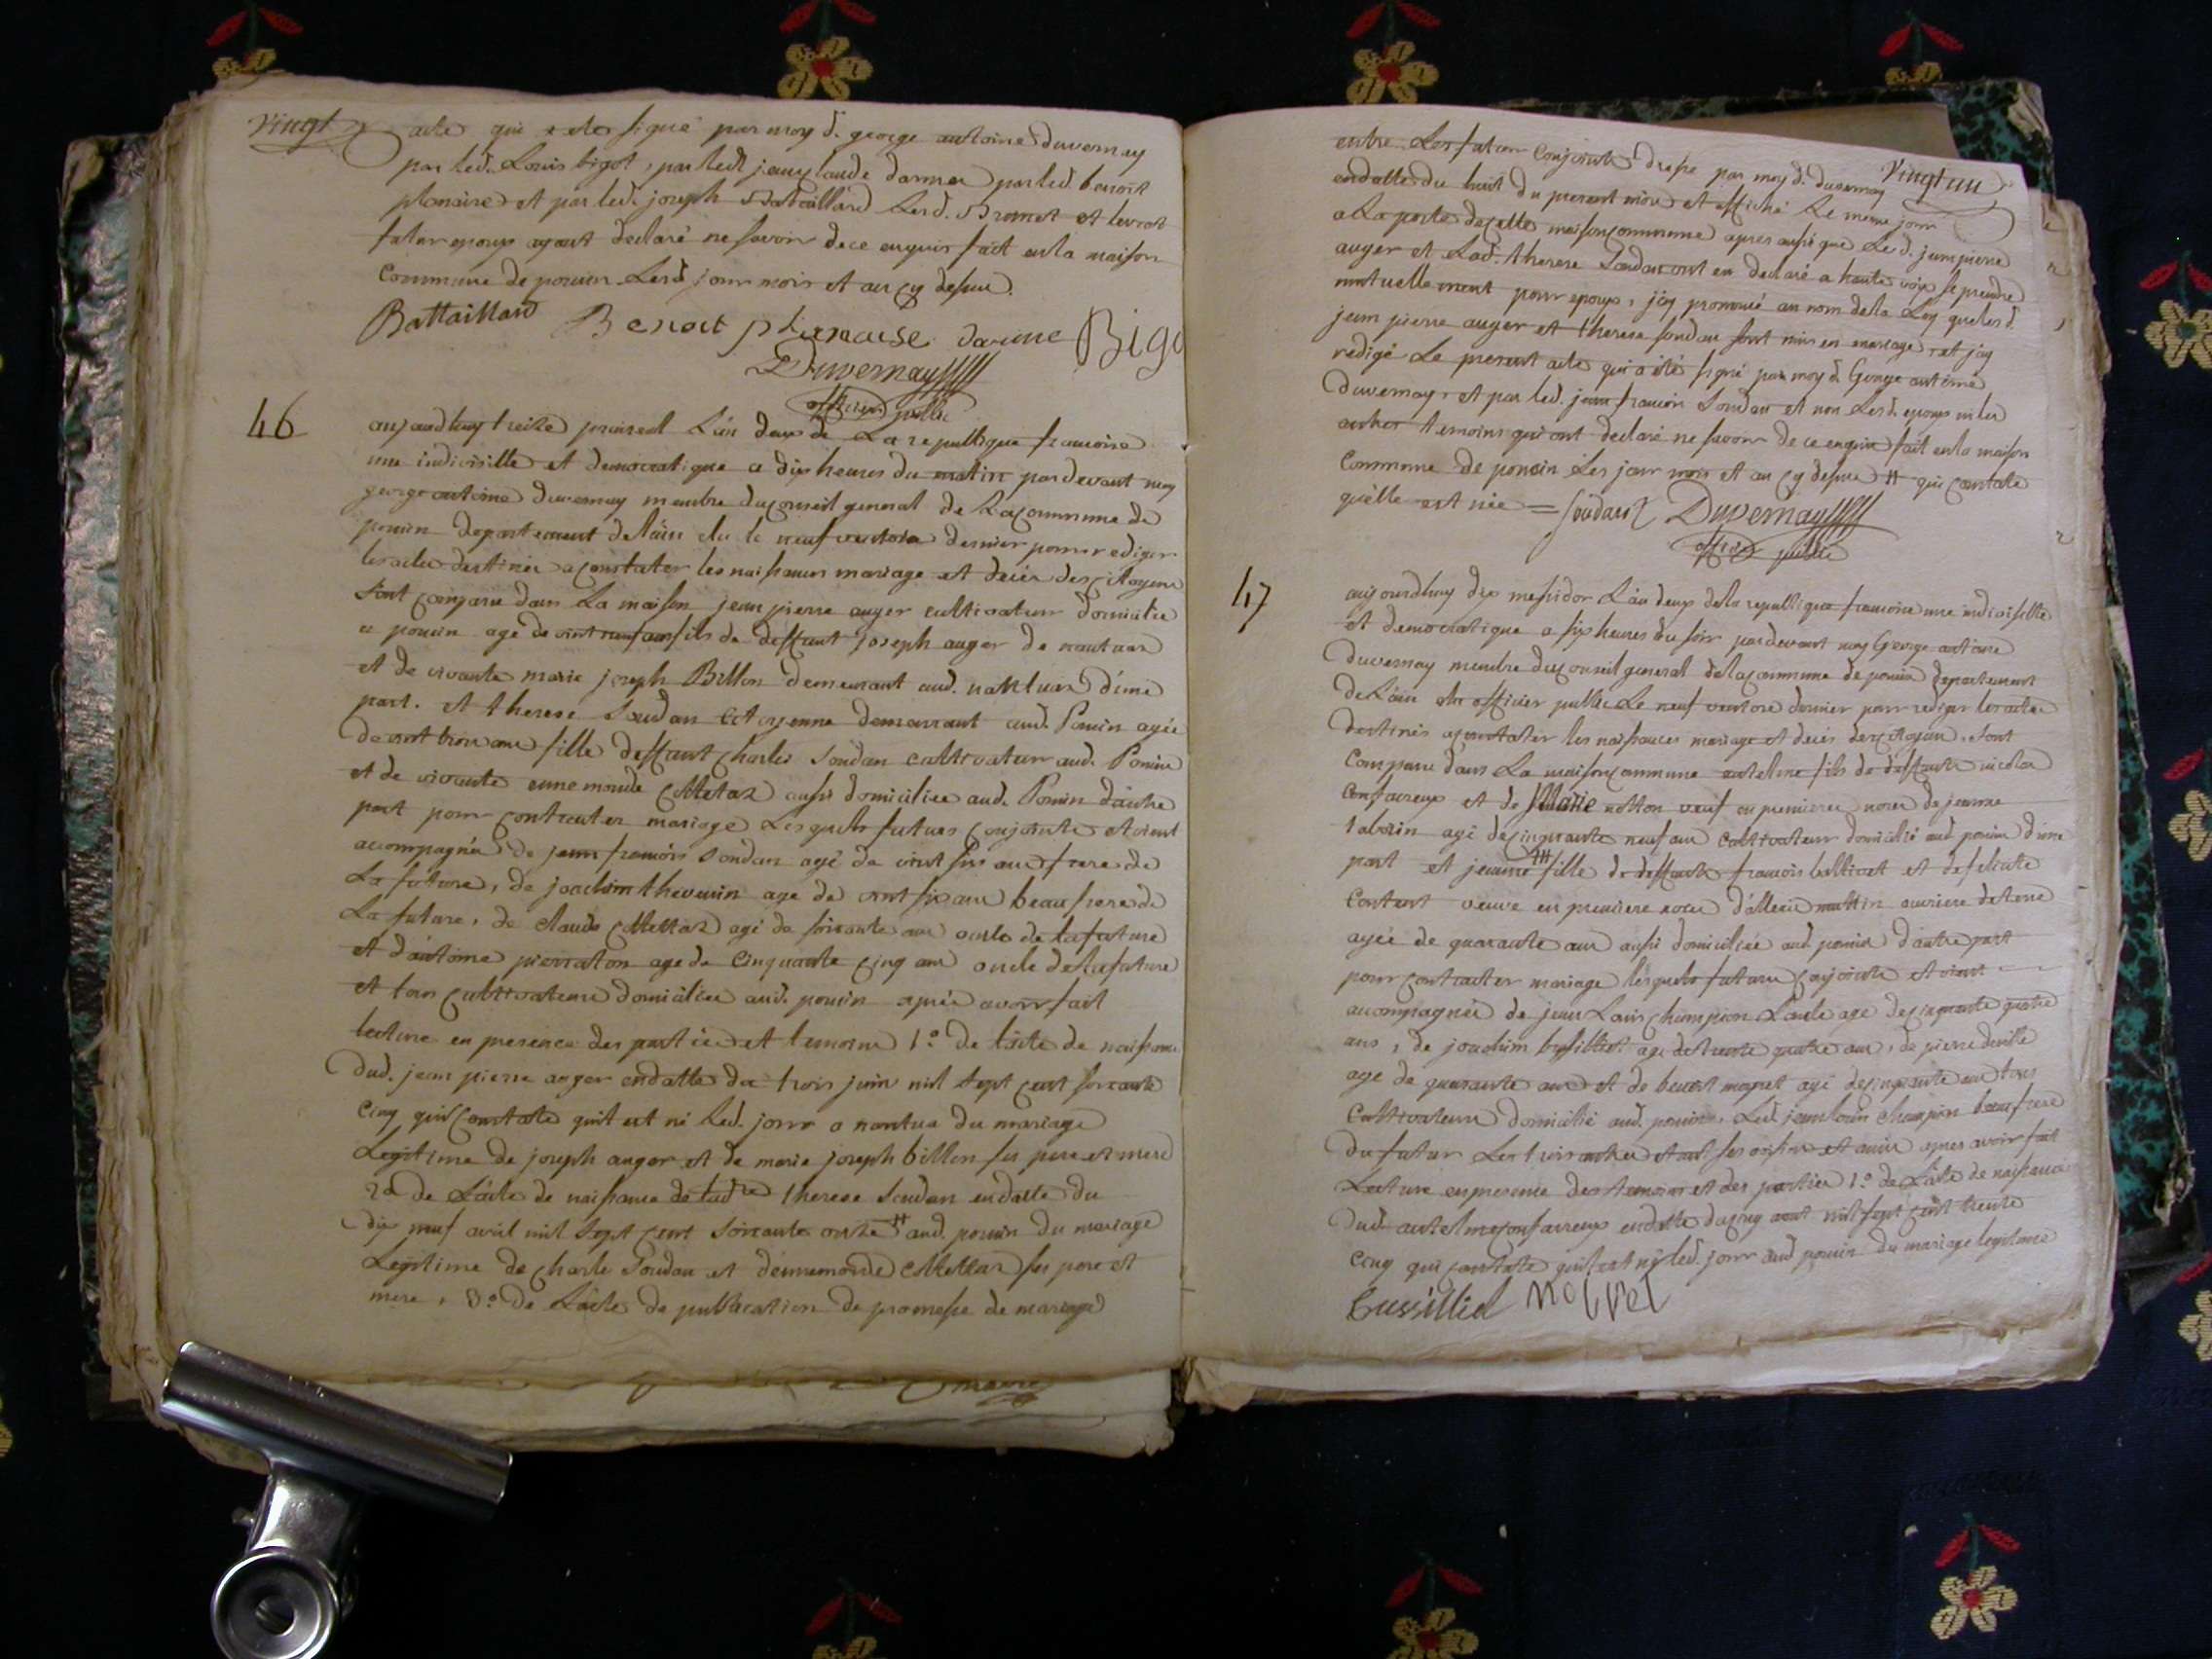 vingt
acte qui a ete signé par moy d. george antoine duvernay
par led. Louis bigot, par led. jean claude darmer par led. benoit
planaise et par led. joseph Battaillard Lesd. Bromet et levrat
futur epoux ayant declaré ne savoir de ce enquis fait en la maison
commune de poncin Lesd. jour mois et an cy dessus.
Battaillard Benoit planaise darme Bigo
Duvernay
officier public
46
aujourdhuy treize prairial L'an deux de La republique francoise
une indivisille et democratique a dix heures du matin pardevant moy
george antoine duvernay membre du conseil general de La commune de
poncin departement de L'ain elu le neuf ventose dernier pour rediger
les actes destinés a constater les naissances mariage et decés des citoyens
sont comparu dans La maison jean pierre auger cultivateur domicilié
a poncin agé de vint neuf ans fils de deffunt joseph auger de nantua
et de vivante marie joseph Billon demeurant aud. nantua d'une
part. et therese Soudan citoyenne demeurant aud. Poncin agée
de vint trois ans fille deffunt Charles Soudan cultivateur aud. Poncin
et de vivante ennemonde Mettaz aussi domiciliée aud. Poncin d'autre
part pour contracter mariage Lesquels futurs conjoints etoient
accompagnés de jean francois Soudan agé de vint six ans frere de
La future, de joachim thevenin age de vint six ans beau frere de
La future, de claude Mettaz agé de soixante ans oncle de la future
et d'antoine pierraton age de cinquante cinq ans oncle de la future
et tous cultivateurs domiciliés aud. poncin après avoir fait
lecture en presence des parties et temoins 1o. de l'acte de naissance
dud. jean pierre auger en datte du trois juin mil sept cent soixante
cinq qui constate quil est né led. jour a nantua du mariage
Legitime de joseph auger et de marie joseph billon ses pere et mere
2o de L'acte de naissance de lad. therese Soudan en datte du
dix neuf avril mil sept cent soixante onze # aud. poncin du mariage
Legitime de Charle Soudan et d'ennemonde Mettaz ses pere et
mere, 3o. de L'acte de publication de promesse de mariage
vingt un
entre Les futurs conjoints dressé par moy d. duvernay
en datte du huit du present mois et affiché Le meme jour
a La porte de cette maison commune apres aussi que Led. jean pierre
auger et Lad. therese Soudan ont eu declaré a haute voix se prendre
mutuellement pour epoux, j'ay prononcé au nom de la Loy que lesd.
jean pierre auger et therese soudan sont unis en mariage, et j'ay
redigé Le present acte qui a été signé par moy d. George antoine
duvernay, et par led. jean francois Soudan et non Lesd. epoux ni les
autres temoins qui ont declaré ne savoir de ce enquis fait en la maison
commune de poncin Les jour mois et an cy dessus # qui constate
qu'elle est née = Soudan Duvernay
officier public
47
aujourdhuy dix messidor L'an deux de la republique francoise une indivisille
et democratique a six heures du soir pardevant moy George antoine
Duvernay membre du conseil general de la commune de poncin departement
de L'ain elu officier public Le neuf ventose dernier pour rediger les actes
destinés a constater les naissances mariage et decés des citoyens. sont
comparu dans La maison commune fils de deffunt nicolas
et de Marie veuf en premieres noces de jeanne
agé de cinquante neuf ans cultivateur domicilié aud. poncin d'une
part et jeanne fille de deffunt francois et de
veuve en premiere noces
agée de quarante ans aussi domiciliée aud. poncin d'autre part
pour contracter mariage lesquels futurs conjoints etoient
accompagnés de jean Louis champion agé de cinquante quatre
ans, de joachim bussilliet agé de trente quatre ans, de pierre
agé de quarante ans et de benoit agé de cinquante ans tous
cultivateurs domicilié aud. poncin, Led. jean louis champion beau frere
du futur Les trois autres etant ses voisins et amis apres avoir fait
Lecture en presence des temoins et des parties 1o. de L'acte de naissance
dud. en datte du cinq aout mil sept cent trente
cinq qui constate quil est né led. jour aud. poncin du mariage legitime
bussilliet